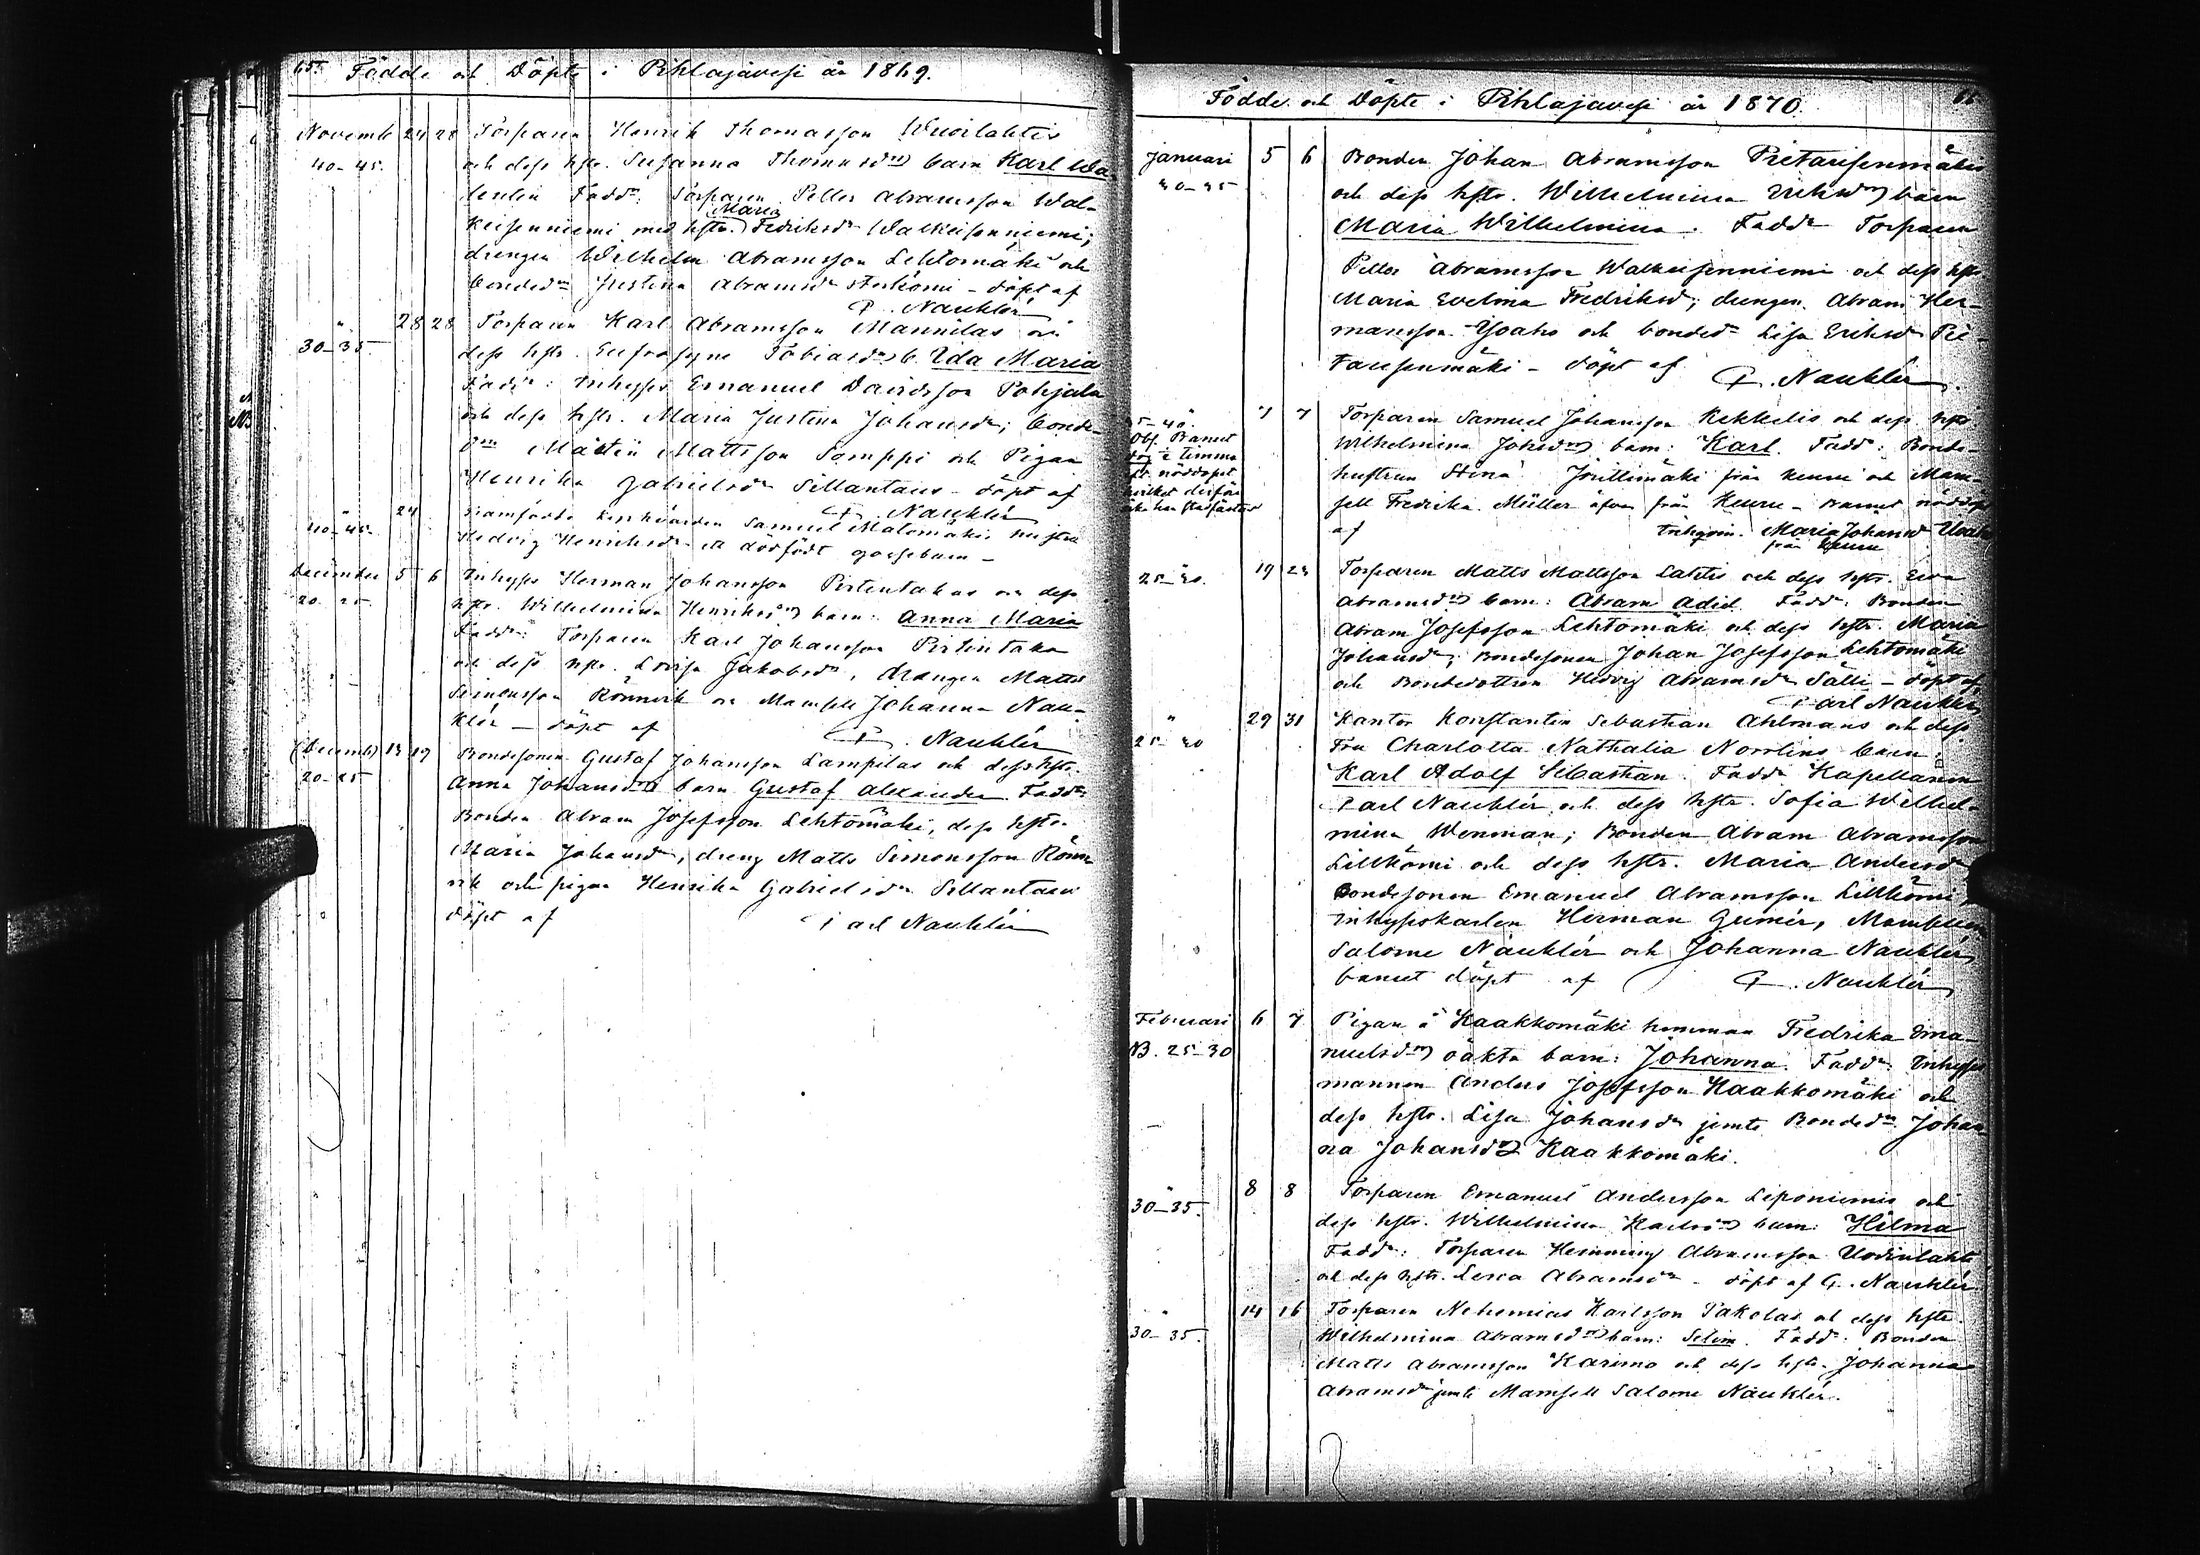 65. Födde och Döpte i Pihlajavesi år 1869.
Novemb 24 28 Torparen Henrik Thomasson Wuorilahtis
40-45. och dess hstr. Susanna Thomasdr barn Karl Wa-
lentin Fadd: Torparen Petter Abramsson Wal-
Maria
keisenniemi med hstr. Fredriksdr Walkeisenniemi;
drengen Wilhelm Abramsson Lehtomäki och
bondedn Justina Abramsdr - döpt af
P. Nauklér
" 28 28 Torparen Karl Abramsson Mannilas och
30-35 dess hstr. Eufrosyne Tobiasdr b. Ida Maria
Fadd: Inhyses Emanuel Davidsson Pohjala
och dess hstr. Maria Justina Johansdr; bonde-
Mattsson Somppi och Pigan
Henrika Gabrielsdr Sillantaus - döpt af
P. Nauklér
" 24 Framfödde Samuel hustru
40-45. Hedvig Henriksdr ett dödfödt gossebarn -
December 5 6 Inhyses Herman Johansson Pirtintakas och dess
20-25. hstr. Wilhelmina Henriksdr barn: Anna Maria
Fadd: Torparen Karl Johansson Pirtintaka
och dess hstr. Lovisa Jakobsdr, drängen Matts
Simonsson Rönnvik och Mamsell Johanna Nau-
klér - döpt af P. Nauklér
(Decemb) 13 19 Bondesonen Gustaf Johansson Lampilas och dess hstr.
20-25 Anna Johansdr barn Gustaf Alexander Fadd:
Bonden Abram Josefsson Lehtomäki, dess hstr.
Maria Johansdr, dreng Matts Simonsson Rönn-
vik och pigan Henrika Gabrielsdr Sillantaus
döpt af Carl Nauklér
Födde och Döpte i Pihlajavesi år 1870. 66
Januari 5 6 Bonden Johan Abramsson Pietarisenmäkis
30-35 och dess hstr. Wilhelmina Eriksdr barn
Maria Wilhelmina. Fadd: Torparen
Petter Abramsson Walkeisenniemi och dess hstr
Maria Evelina Fredriksdr; drengen Abram Her-
mansson Ijoaho och bondedr Lisa Eriksdr Pie-
tarisenmäki - döpt af P. Nauklér.
" 7 7 Torparen Samuel Johansson Kekkelis och dess hstr
35-40. Wilhelmina Johsdr barn: Karl. Fadd: Bonde-
Obs. Barnet hustrun Stina från Keuru och Mam-
dog timma sell Fredrika Müller äfven från Keuru - Barnet nöddöpt
nöddöpet af inhysin. Maria Johansd
hvilket derför från Keuru
stadfästes
" 19 23 Torparen Matts Mattsson Lahtis och dess hstr. Eva
25-30. Abramsdr barn: Abram Adiel. Fadd: Bonden
Abram Josefsson Lehtomäki och dess hstr. Maria
Johansdr; Bondesonen Johan Josefsson Lehtomäki
och Bondedottren Hedvig Abramsdr Sälli - döpt af
Carl Nauklér
" 29 31 Kantor Konstantin Sebastian Ahlmans och dess
25-30 Fru Charlotta Nathalia Norrlins barn:
Karl Adolf Sebastian. Fadd: Kapellanen
Carl Nauklér och dess hstr. Sofia Wilhel-
mina Wenman; Bonden Abram Abramsson
Lillkömi och dess hstr. Maria Andersdr
Bondesonen Emanuel Abramsson Lillkömi,
inhyseskarlen Herman Grimér, Mamsellen
Salome Nauklér och Johanna Nauklér,
barnet döpt af P. Nauklér
Februari 6 7 Pigan å Haakkomäki hemman Fredrika Ema-
NB. 25-30 nuelsdr oäkta barn: Johanna. Fadd: Inhyses
mannen Anders Josefsson Haakkomäki och
dess hstr. Lisa Johansdr jemte Bondedr Johan-
na Johansdr Haakkomäki.
" 8 8 Torparen Emanuel Andersson Leponiemis och
30-35. dess hstr. Wilhelmina Karlsdr barn: Hilma
Fadd: Torparen Hemming Abramsson Uodinlahti
och dess hstr. Lena Abramsdr - döpt af P. Nauklér
" 14 16 Torparen Nehemias Karlsson Pakolas och dess hstr
30-35. Wilhelmina Abramsdr barn: Selim. Fadd: Bonden
Matts Abramsson Karimo och dess hstr. Johanna
Abramsdr jemte Mamsell Salome Nauklér.